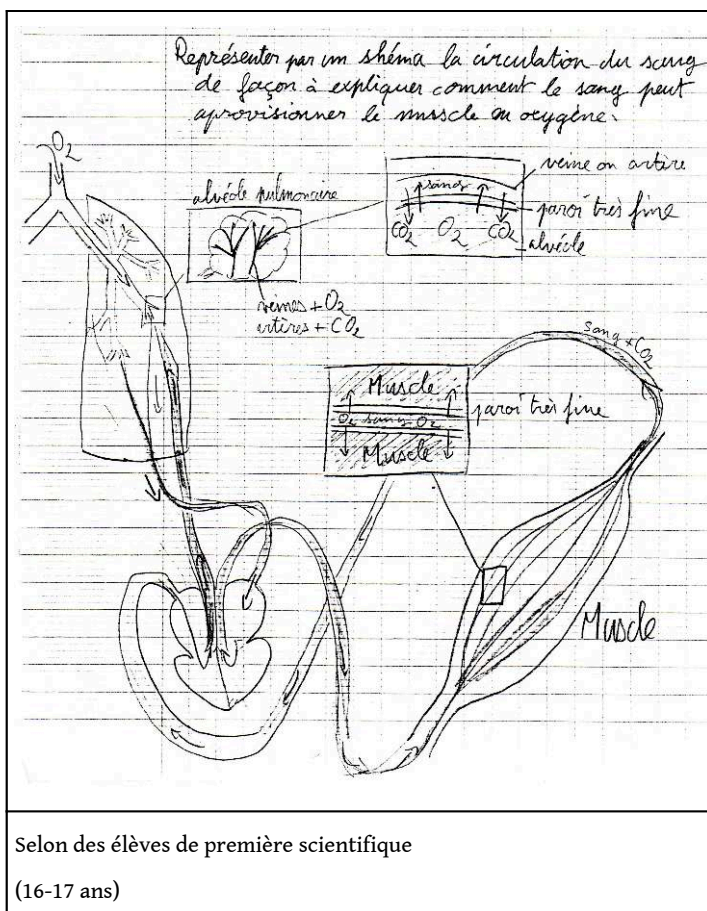 Représenter par un shéma la circulation du sang
de façon à expliquer comment le sang peut
aprovisionner le musscle en oxygène.
O2
alvéole pulmonaire
veines + O2
artères + CO2
veine ou artère
sang
paroi très fine
CO2 O2 CO2
alvéole
sang + CO2
Muscle
O2 sang O2
Muscle
paroi très fine
Muscle
Selon des élèves de première scientifique
(16-17 ans)